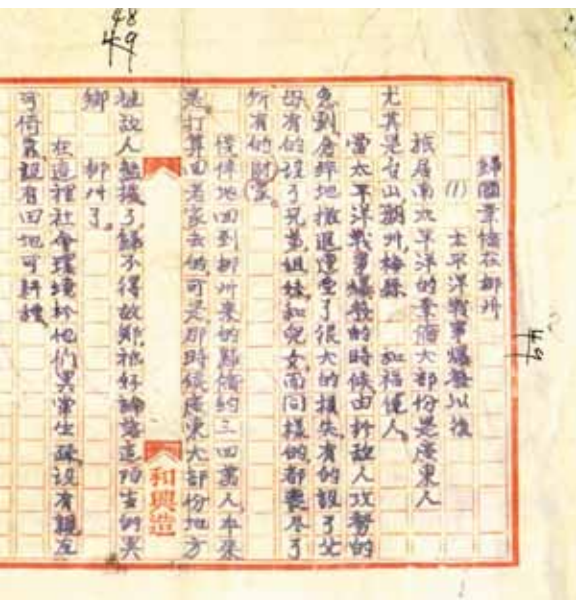 48
49
歸國華僑在柳州
(1) 太平洋戰爭爆發以後
旅居南太平洋的華僑大部份是廣東人
尤其是台山潮州梅縣 和福僮人。
當太平洋戰爭爆發的時候由於敵人攻勢的
急劇，倉猝地撤退遭受了很大的損失，有的設了父
母有的設了兄弟姐妹和兒女而同樣的都喪尽了
所有的財富。
僥倖地回到柳州來的難僑約三四萬人，本來
是打算回老家去的可是那時候廣東大部份地方
被敵人 了歸不得故鄉，祇好 這陌生的異
鄉 柳州了。
在這裡社會環境於他們異常生疎，設有親友
可倚靠，設有田地可耕種，
和興造